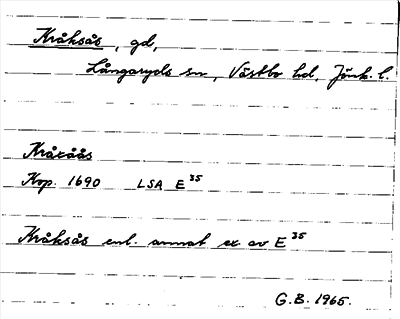 Kråksås, gd,
Långaryds sn, Västbo hd, Jönk. l.
Kråxåås
Kop. 1690 LSA E³⁵
Kråksås enl. annat ex. av E³⁵
G.B. 1965.